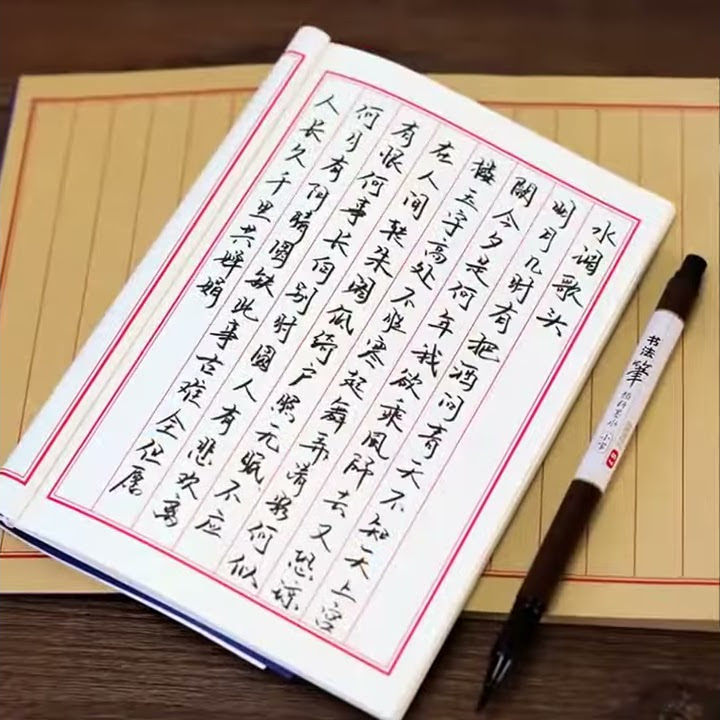 水调歌头
明月几时有把酒问青天不知天上宫
阙今夕是何年我欲乘风归去又恐琼
楼玉宇高处不胜寒起舞弄清影何似
在人间转朱阁低绮户照无眠不应
有恨何事长向别时圆人有悲欢离
何月有阴晴圆缺此事古难全但愿
人长久千里共婵娟
书法筆
小字